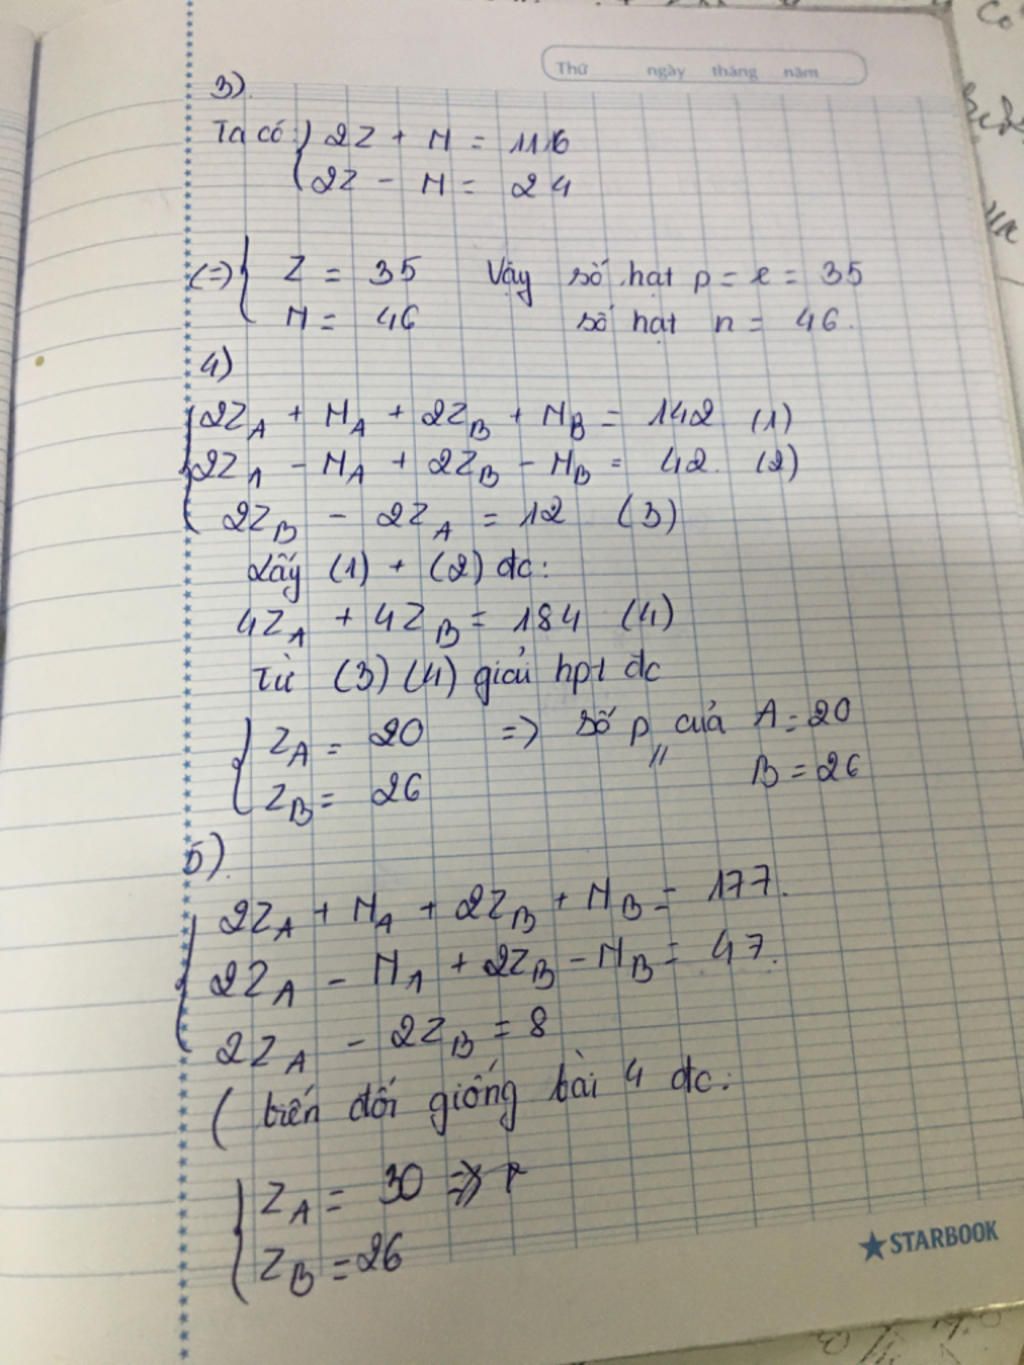 Thứ ngày tháng năm
3).
Ta có: { 2Z + N = 116
2Z - N = 24
(=) { Z = 35 Vậy số hạt p = e = 35
N = 46 số hạt n = 46.
4)
{ 2Z_A + N_A + 2Z_B + N_B = 142 (1)
2Z_A - N_A + 2Z_B - N_B = 42. (2)
2Z_B - 2Z_A = 12 (3)
Lấy (1) + (2) đc:
4Z_A + 4Z_B = 184 (4)
Từ (3) (4) giải hpt đc
{ Z_A = 20 => số p của A = 20
Z_B = 26 " B = 26
5).
{ 2Z_A + N_A + 2Z_B + N_B = 177.
2Z_A - N_A + 2Z_B - N_B = 47.
2Z_A - 2Z_B = 8
( biến đổi giống bài 4 đc:
{ Z_A = 30 =>
Z_B = 26
STARBOOK